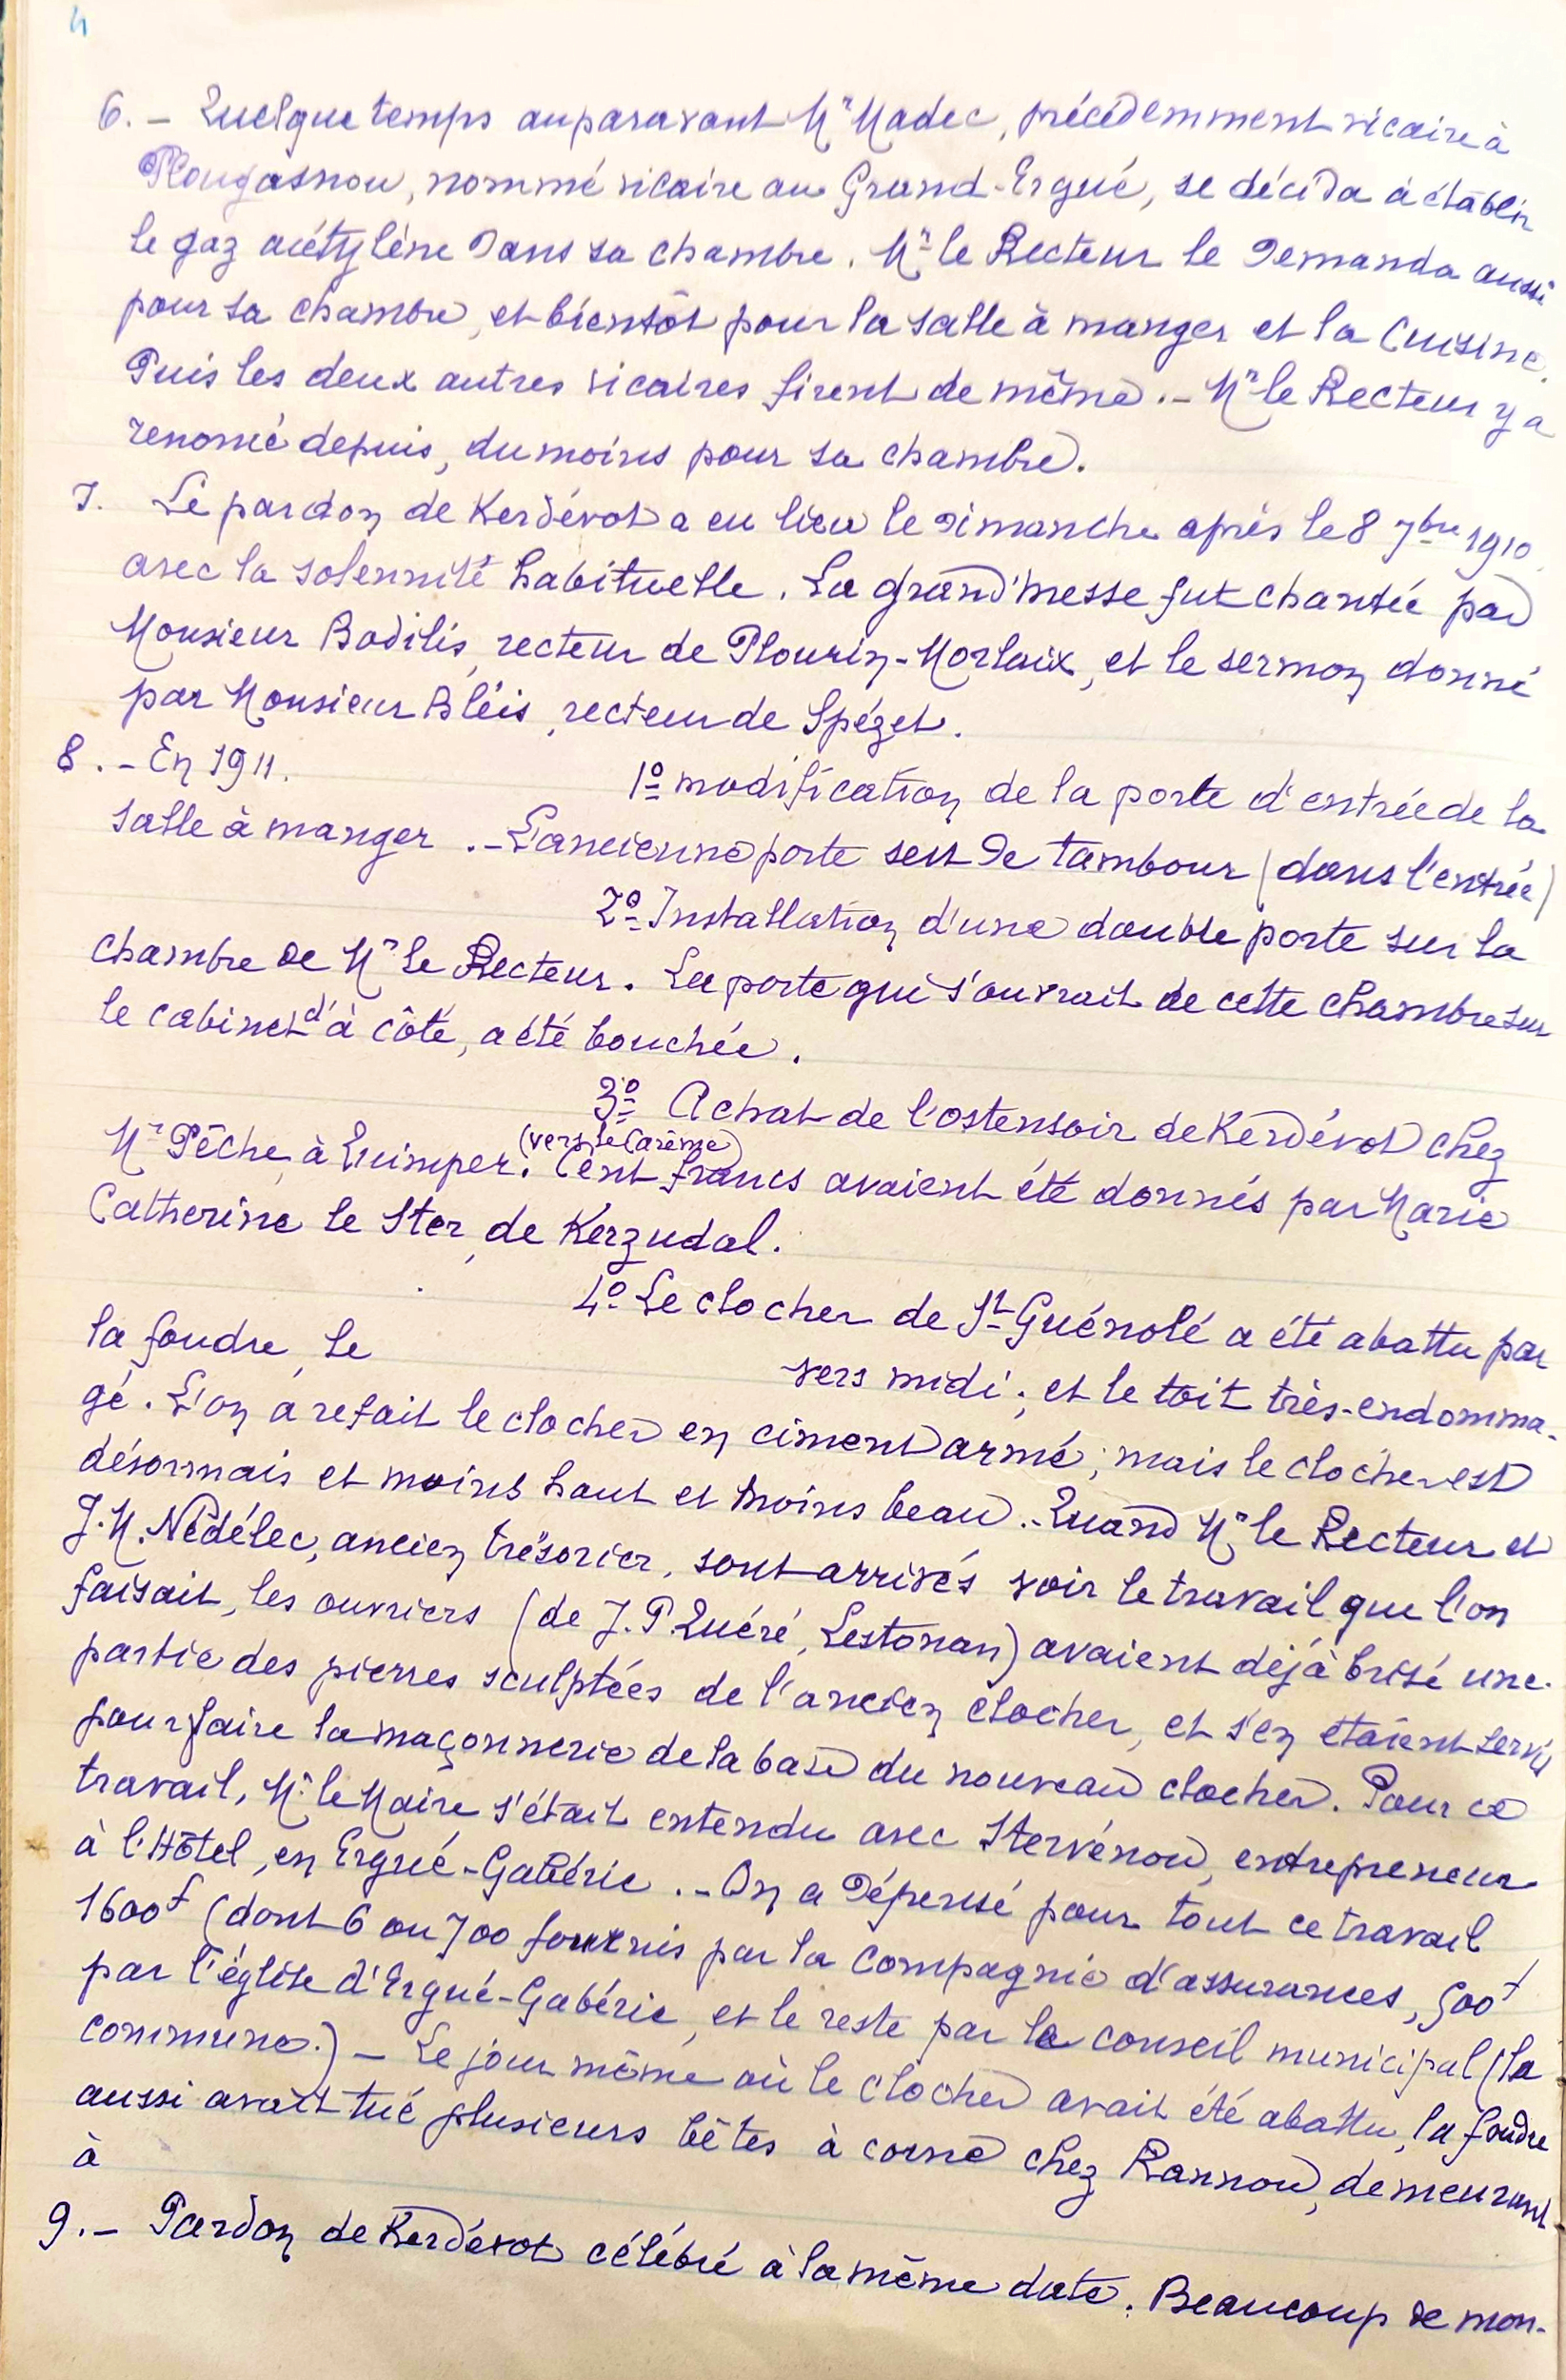 4
6. – Quelque temps auparavant Mr Madec, précédemment vicaire à
Plougasnou, nommé vicaire au Grand-Ergué, se décida à établir
le gaz acétylène dans sa chambre. Mr le Recteur le demanda aussi
pour sa chambre, et bientôt pour la salle à manger et la cuisine.
Puis les deux autres vicaires firent de même. – Mr le Recteur y a
renoncé depuis, du moins pour sa chambre.
7. Le pardon de Kerdévot a eu lieu le dimanche après le 8 7bre 1910
avec la solennité habituelle. La grand'messe fut chantée par
Monsieur Bodilis, recteur de Plourin-Morlaix, et le sermon donné
par Monsieur Bléis, recteur de Spézet.
8. – En 1911.
1º modification de la porte d'entrée de la
salle à manger. – L'ancienne porte sert de tambour (dans l'entrée)
2º Installation d'une double porte sur la
chambre de Mr le Recteur. La porte qui s'ouvrait de cette chambre sur
le cabinet d'à côté, a été bouchée.
3º Achat de l'ostensoir de Kerdévot chez
Mr Pêche, à Quimper. (vers le Carême) Cent francs avaient été donnés par Marie
Catherine le Ster, de Kerzudal.
4º Le clocher de St Guénolé a été abattu par
la foudre, le vers midi ; et le toit très-endomma-
gé. L'on a refait le clocher en ciment armé ; mais le clocher est
désormais et moins haut et moins beau. – Quand Mr le Recteur et
J.M. Nédélec, ancien trésorier, sont arrivés voir le travail que l'on
faisait, les ouvriers (de J.P. Quéré, Lestonan) avaient déjà brisé une
partie des pierres sculptées de l'ancien clocher, et s'en étaient servis
pour faire la maçonnerie de la base du nouveau clocher. Pour ce
travail, Mr le Maire s'était entendu avec Stervénou, entrepreneur
à l'Hôtel, en Ergué-Gabéric. – On a dépensé pour tout ce travail
1600f (dont 6 ou 700 fournis par la Compagnie d'assurances, 500f
par l'église d'Ergué-Gabéric, et le reste par le conseil municipal (la
commune.) – Le jour même où le clocher avait été abattu, la foudre
aussi avait tué plusieurs bêtes à corne chez Rannou, demeurant
à
9. – Pardon de Kerdévot célébré à la même date. Beaucoup de mon-